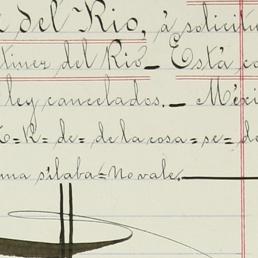 del Rio, á solicitu
tinez del Rio_ Está co
ley cancelados._ Méxi
E=R= de=de la cosa=se=do
una silaba=No vale.